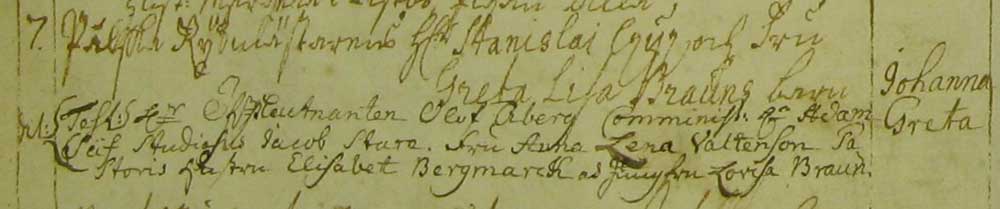 7. Pålska Ryttmästarens H: Stanislai och Fru
Greta Lisa Brauns barn Johanna
Test: Hr Leutnanten Olof Åberg Comminist: Hr Adam Greta
Studiosus Jacob Stare. Fru Anna Lena Valtenson Pa
storis hustru Elisabet Bergmarck ad Jungfru Lovisa Braun.